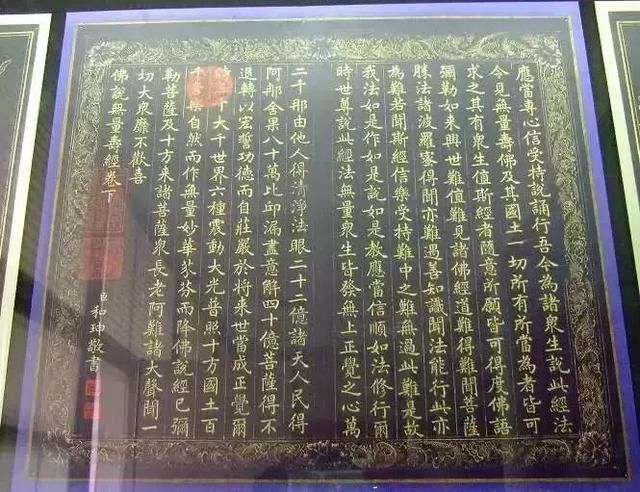 應當專心信受持說誦行吾今為諸衆生說此經法
令見無量壽佛及其國土一切所有所當為者皆可
求之其有衆生值斯經者隨意所願皆可得度佛語
彌勒如來興世難值難見諸佛經道難得難聞菩薩
勝法諸波羅蜜得聞亦難遇善知識聞法能行此亦
為難若聞斯經信樂受持難中之難無過此難是故
我法如是作如是說如是教應當信順如法修行爾
時世尊說此經法無量衆生皆發無上正覺之心萬
二千那由他人得清淨法眼二十二億諸天人民得
阿那含果八十萬比邱漏盡意解四十億菩薩得不
退轉以宏誓功德而自莊嚴於將来世當成正覺爾
時三千大千世界六種震動大光普照十方國土百
千音樂自然而作無量妙華芬芬而降佛說經已彌
勒菩薩及十方來諸菩薩衆長老阿難諸大聲聞一
切大衆靡不歡喜
佛說無量壽經卷下
臣和珅敬書